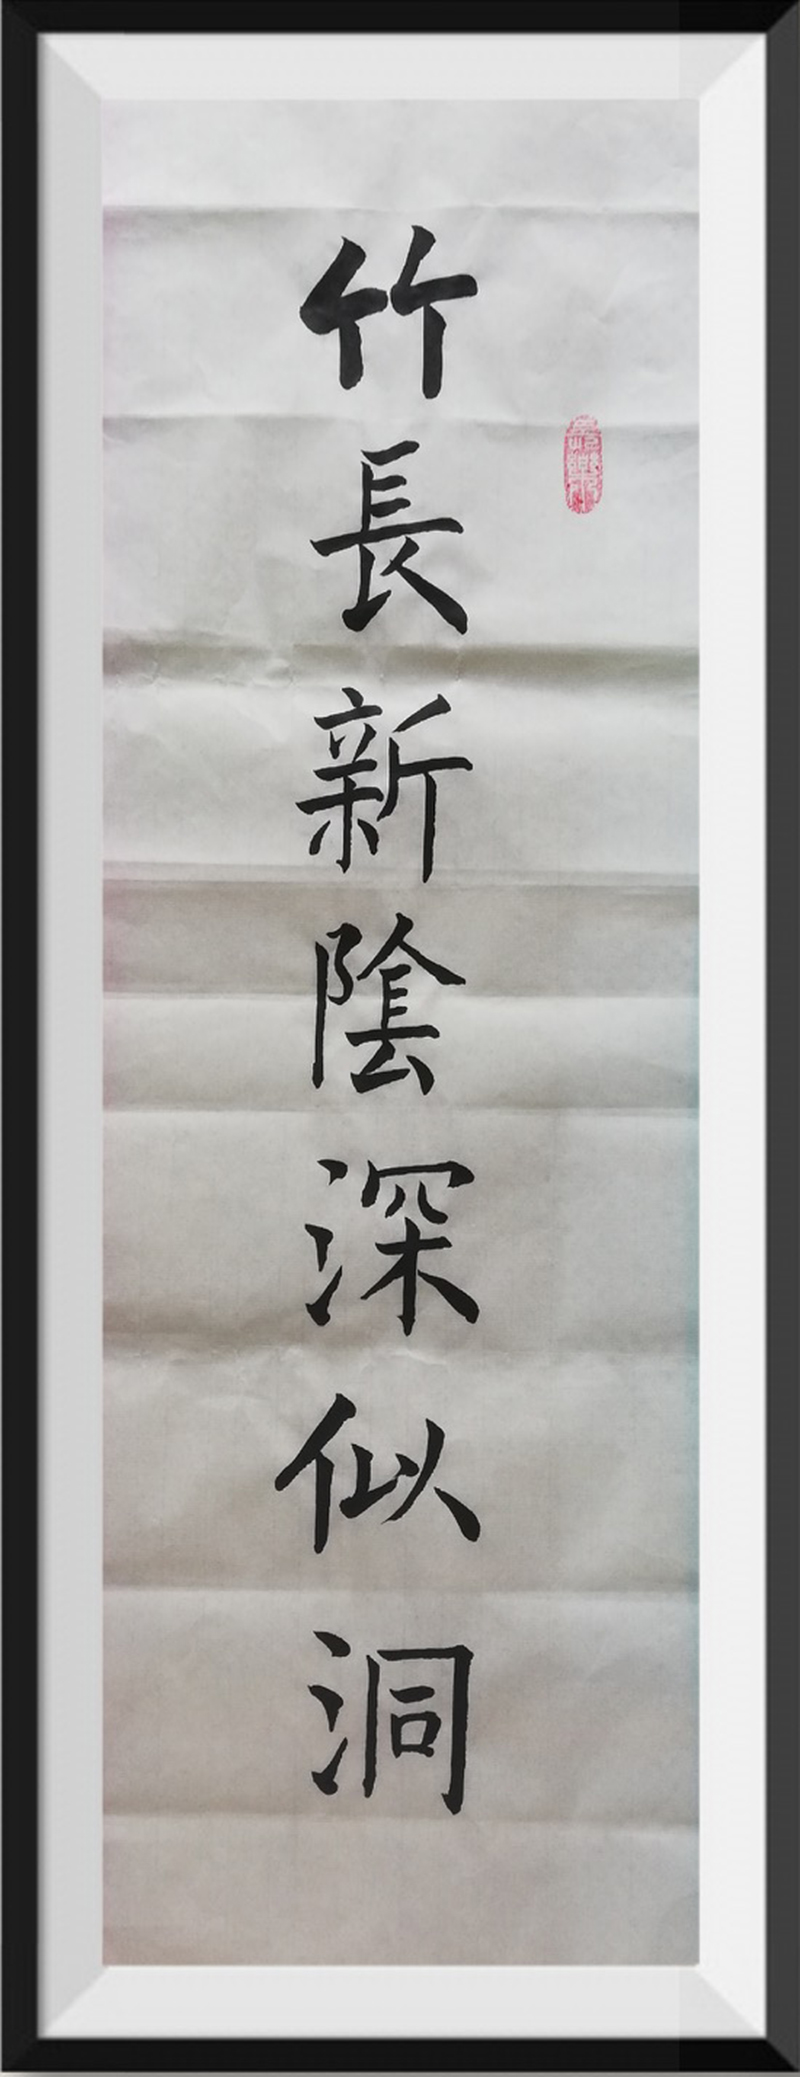 竹長新陰深似洞